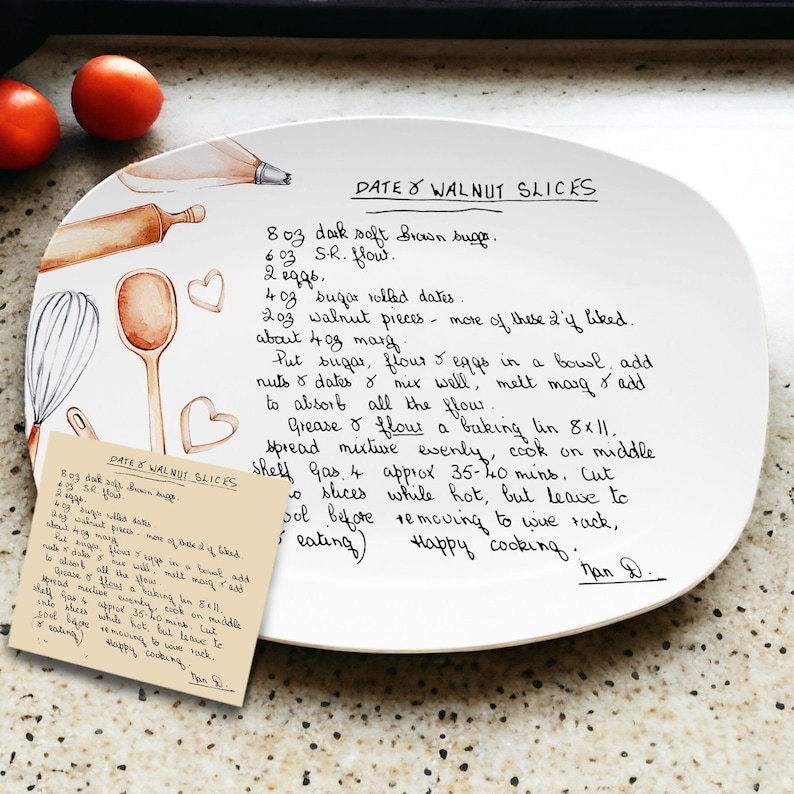 DATE & WALNUT SLICES
8 oz dark soft Brown sugar.
6 oz S.R. flour.
2 eggs,
4 oz sugar rolled dates.
2 oz walnut pieces - more of these 2 if liked.
about 4 oz marg.
Put sugar, flour & eggs in a bowl, add
nuts & dates & mix well, melt marg & add
to absorb all the flour.
Grease & flour a baking tin 8x11.
spread mixture evenly, cook on middle
shelf Gas. 4 approx 35-40 mins. Cut
to slices while hot, but leave to
ool before removing to wire rack,
eating) Happy cooking.
Nan D.
DATE & WALNUT SLICES
8 oz dark soft Brown sugar.
6 oz S.R. flour.
2 eggs,
4 oz sugar rolled dates
2 oz walnut pieces - more of these 2 if liked.
about 4 oz marg
Put sugar, flour & eggs in a bowl, add
nuts & dates & mix well, melt marg & add
to absorb all the flour
Grease & flour a baking tin 8x11.
spread mixture evenly, cook on middle
shelf Gas 4 approx 35-40 mins. Cut
into slices while hot, but leave to
cool before removing to wire rack,
(& eating) Happy cooking.
Nan D.